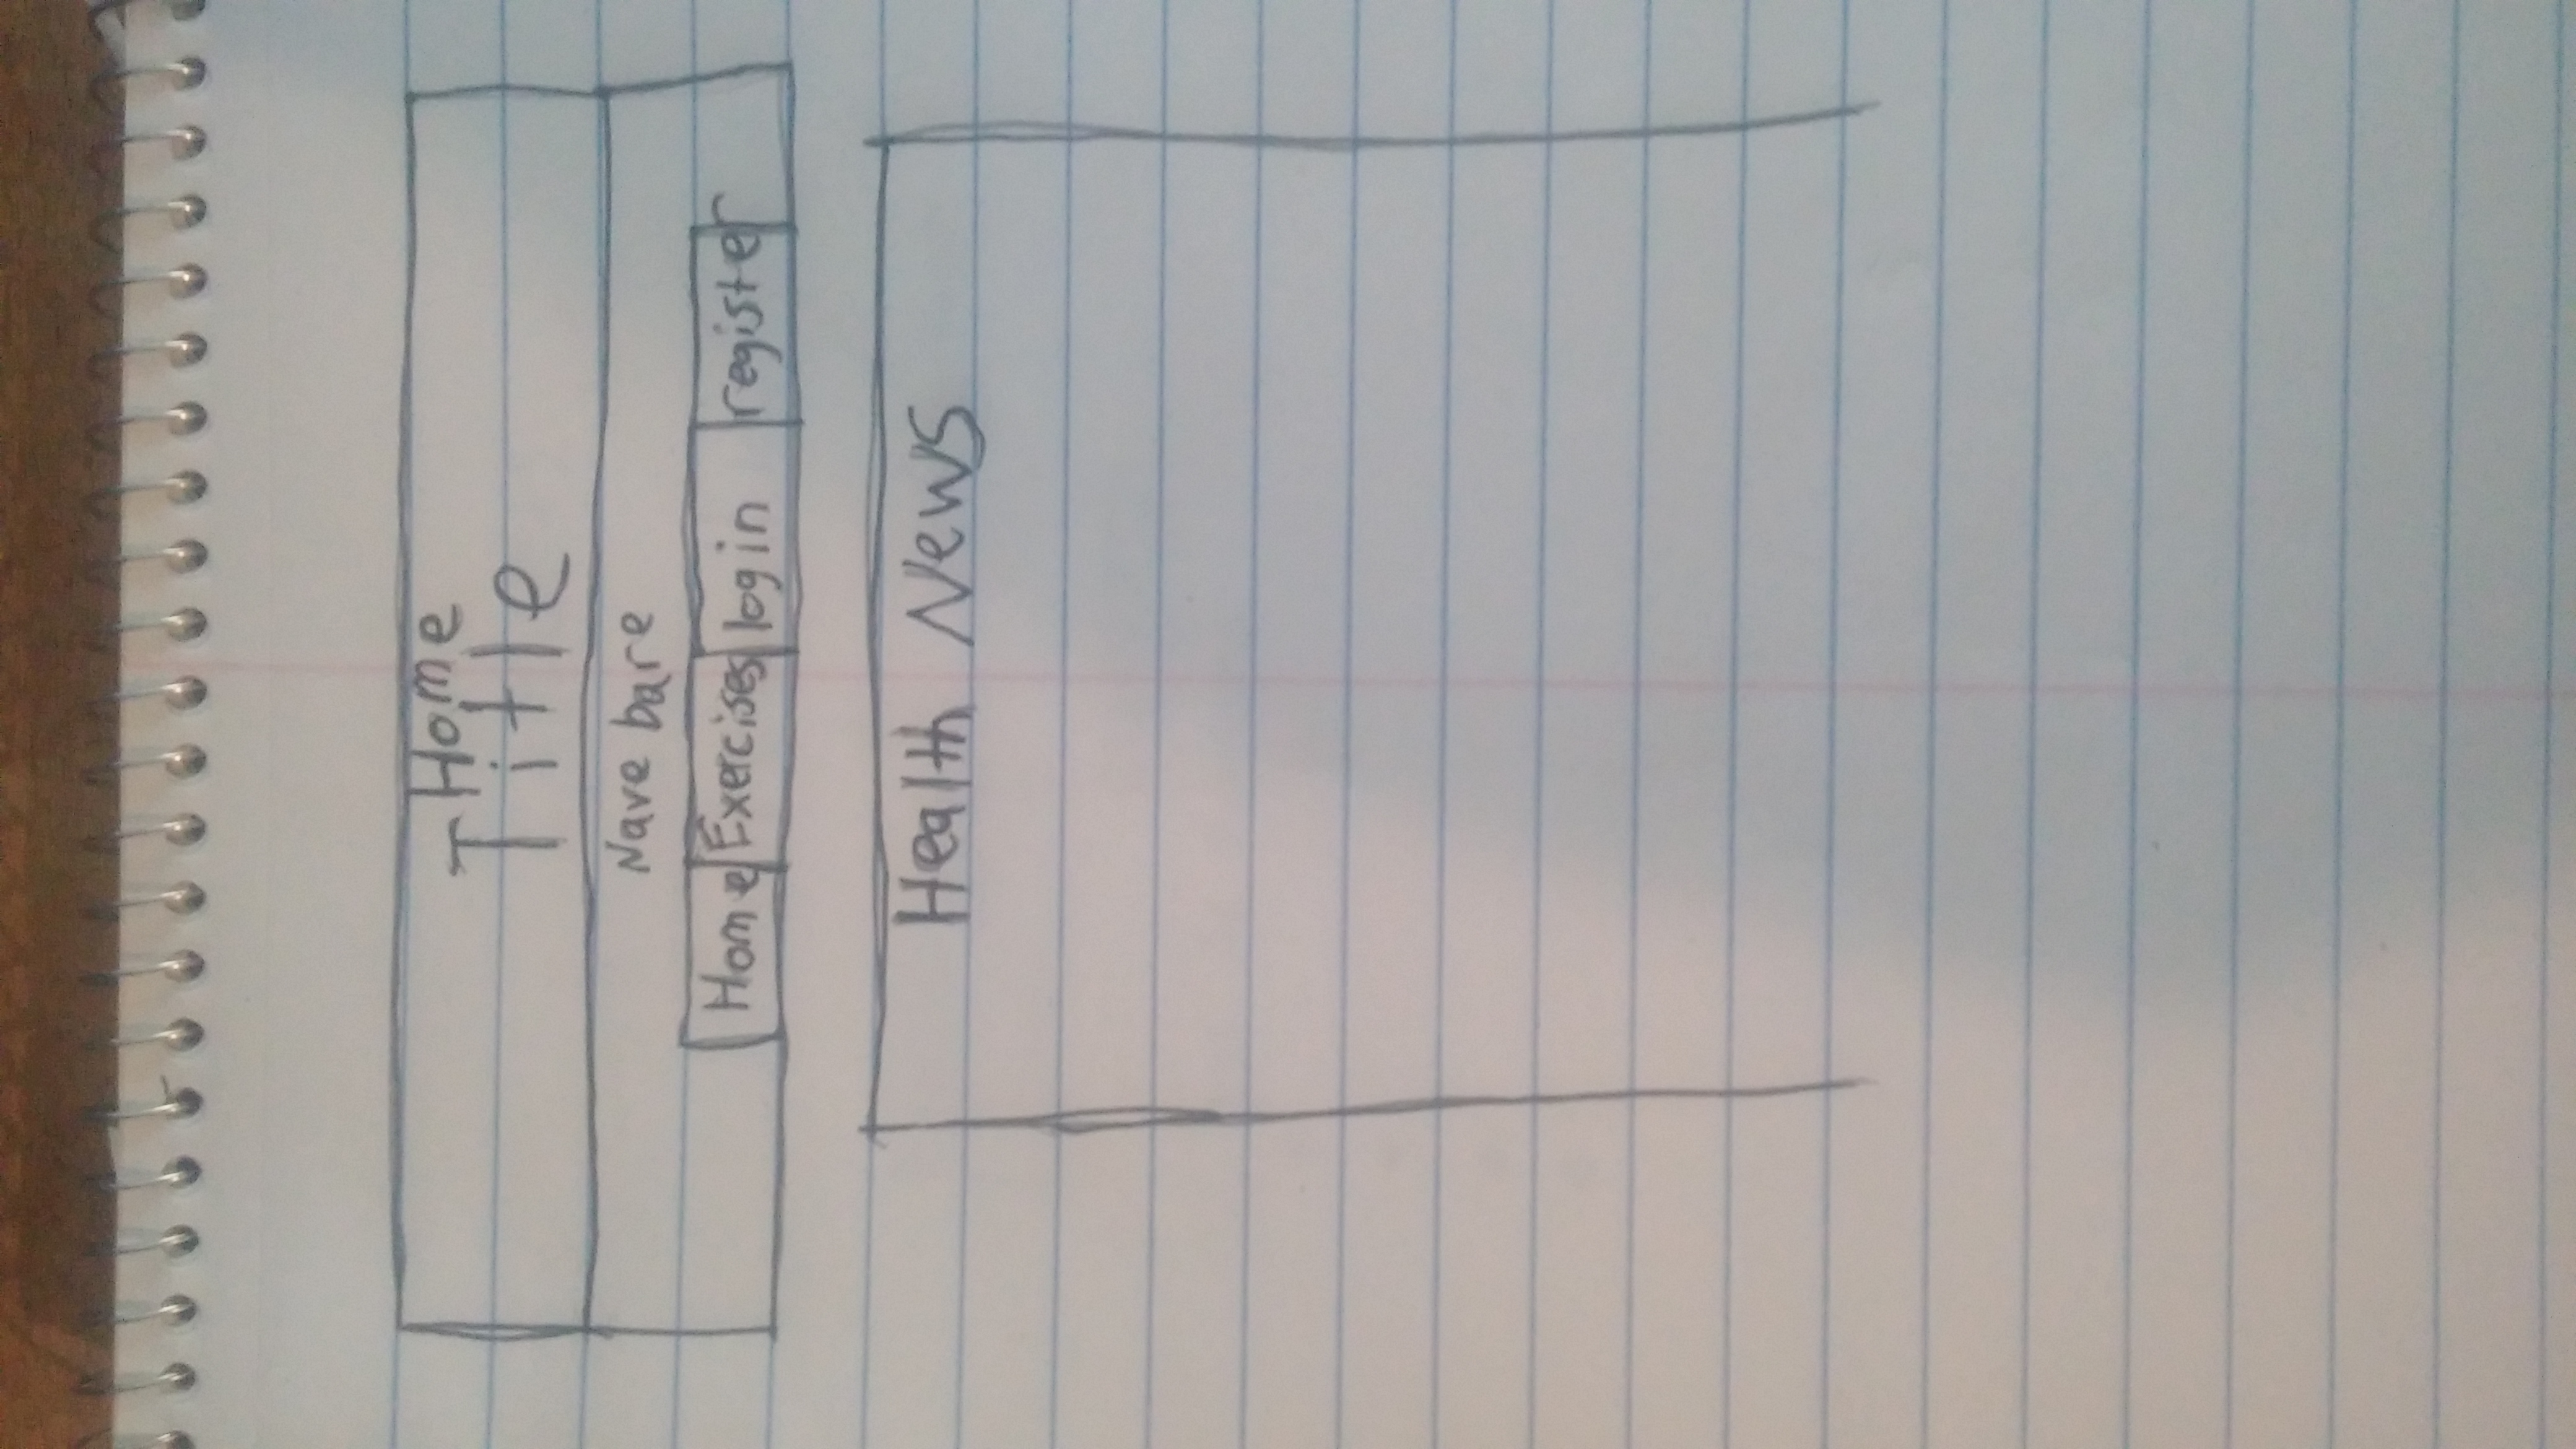 Home
Title
Nave bare
Home Exercises login register
Health News